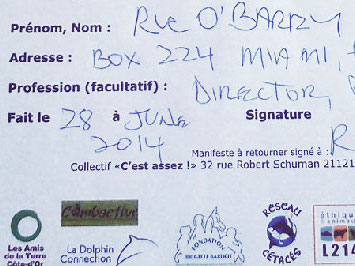 Prénom, Nom : Ric O'Barry
Adresse : BOX 224 MIAMI,
Profession (facultatif) : DIRECTOR,
Fait le 28 à JUNE Signature
2014
Manifeste à retourner signé à : R
Collectif «C'est assez !» 32 rue Robert Schuman 21121
Combactive
RESEAU
CÉTACÉS
Les Amis
de la Terre
Côte-d'Or
La Dolphin
Connection
FONDATION
BRIGITTE BARDOT
L214